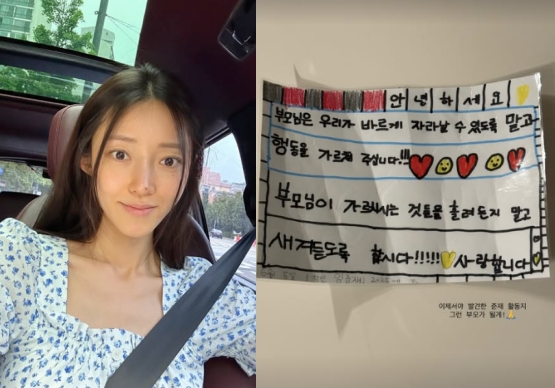 안녕하세요
부모님은 우리가 바르게 자라날 수 있도록 말과
행동을 가르쳐 주십니다.!!!
부모님이 가르쳐시는 것들을 흘려듣지 말고
새겨듣도록 합시다!!!!! 사랑합니다
이제서야 발견한 준재 활동지
그런 부모가 될게!